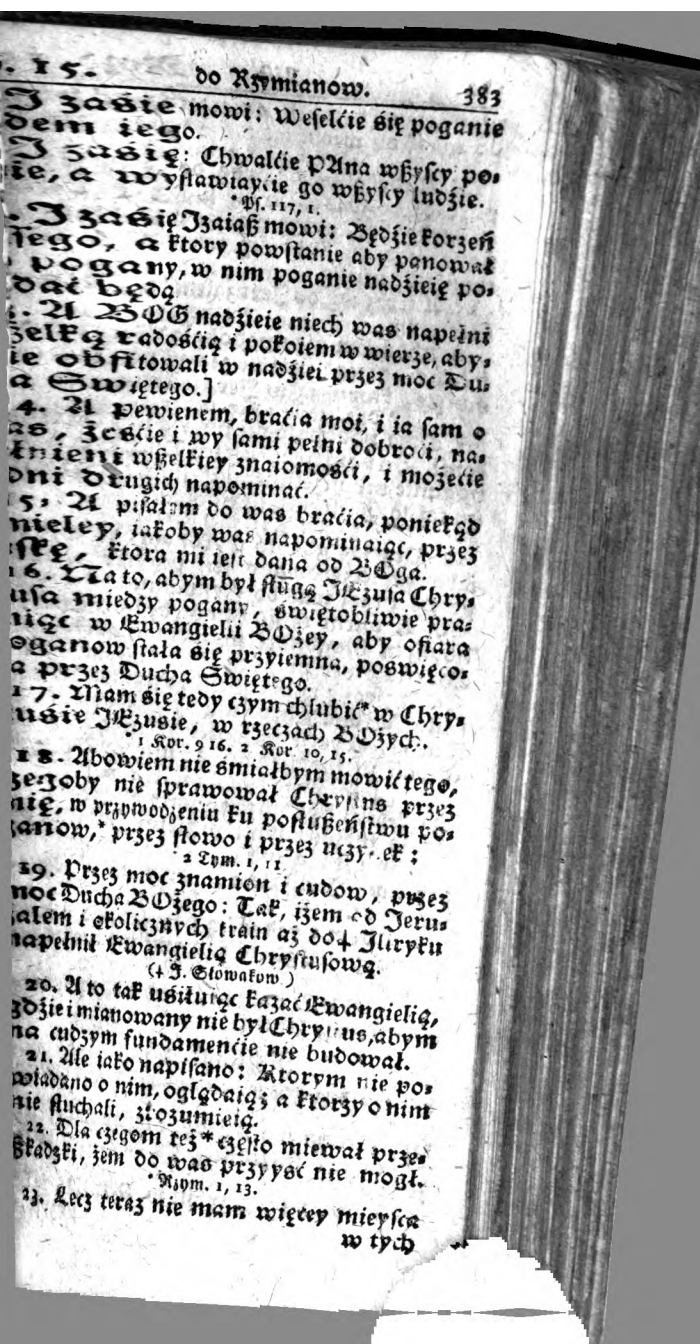 15. do Rzymianow. 383
J zasie mowi: Weselćie się poganie
dem iego.
J zasię: Chwalćie PAna wßyscy po-
ie, a wystawiayćie go wßyscy ludźie.
* Ps. 117, 1.
J zasię Jzaiaß mowi: Będźie korzeń
sego, a ktory powstanie aby panował
pogany, w nim poganie nadźieię po-
dać będą
A BOG nadźieie niech was napełni
zelką radośćią i pokoiem w wierze, aby-
ie obfitowali w nadźiei przez moc Du-
a Swiętego.]
4. A pewienem, braćia moi, i ia sam o
as, żesćie i wy sami pełni dobroci, na-
łnieni wßelkiey znaiomośći, i możećie
dni drugich napominać.
15. A pisałem do was braćia, poniekąd
mieley, iakoby was napominaiąc, przez
skę, ktora mi iest dana od BOga.
16. Na to, abym był sługą JEzusa Chry-
usa miedzy pogany, świętobliwie pra-
iąc w Ewangielii BOżey, aby ofiara
oganow stała się przyiemna, poswięco-
a przez Ducha Swiętego.
17. Mam się tedy czym chlubić* w Chry-
usie JEzusie, w rzeczach BOżych.
* 1 Kor. 9 16. 2 Kor. 10, 15.
18. Abowiem nie śmiałbym mowić tego,
zegoby nie sprawował Chrystus przez
nię, w przywodzeniu ku posłußeństwu po-
ganow,* przez słowo i przez uczynek:
* 2 Tym. 1, 11
19. Przez moc znamion i cudow, przez
moc Ducha BOżego: Tak, iżem od Jeru-
zalem i okolicznych krain aż do ‡ Jliryku
napełnił Ewangielią Chrystusową.
(‡ J. Słowakow)
20. A to tak usiłuiąc kazać Ewangielią,
gdźie i mianowany nie był Chrystus, abym
na cudzym fundamenćie nie budował.
21. Ale iako napisano: Ktorym nie po-
wiadano o nim, oglądaią; a ktorzy o nim
nie słuchali, zrozumieią.
22. Dla czegom też * często miewał prze-
ßkadzki, żem do was przyyść nie mogł.
* Rzym. 1, 13.
23. Lecz teraz nie mam więcey mieysca
w tych